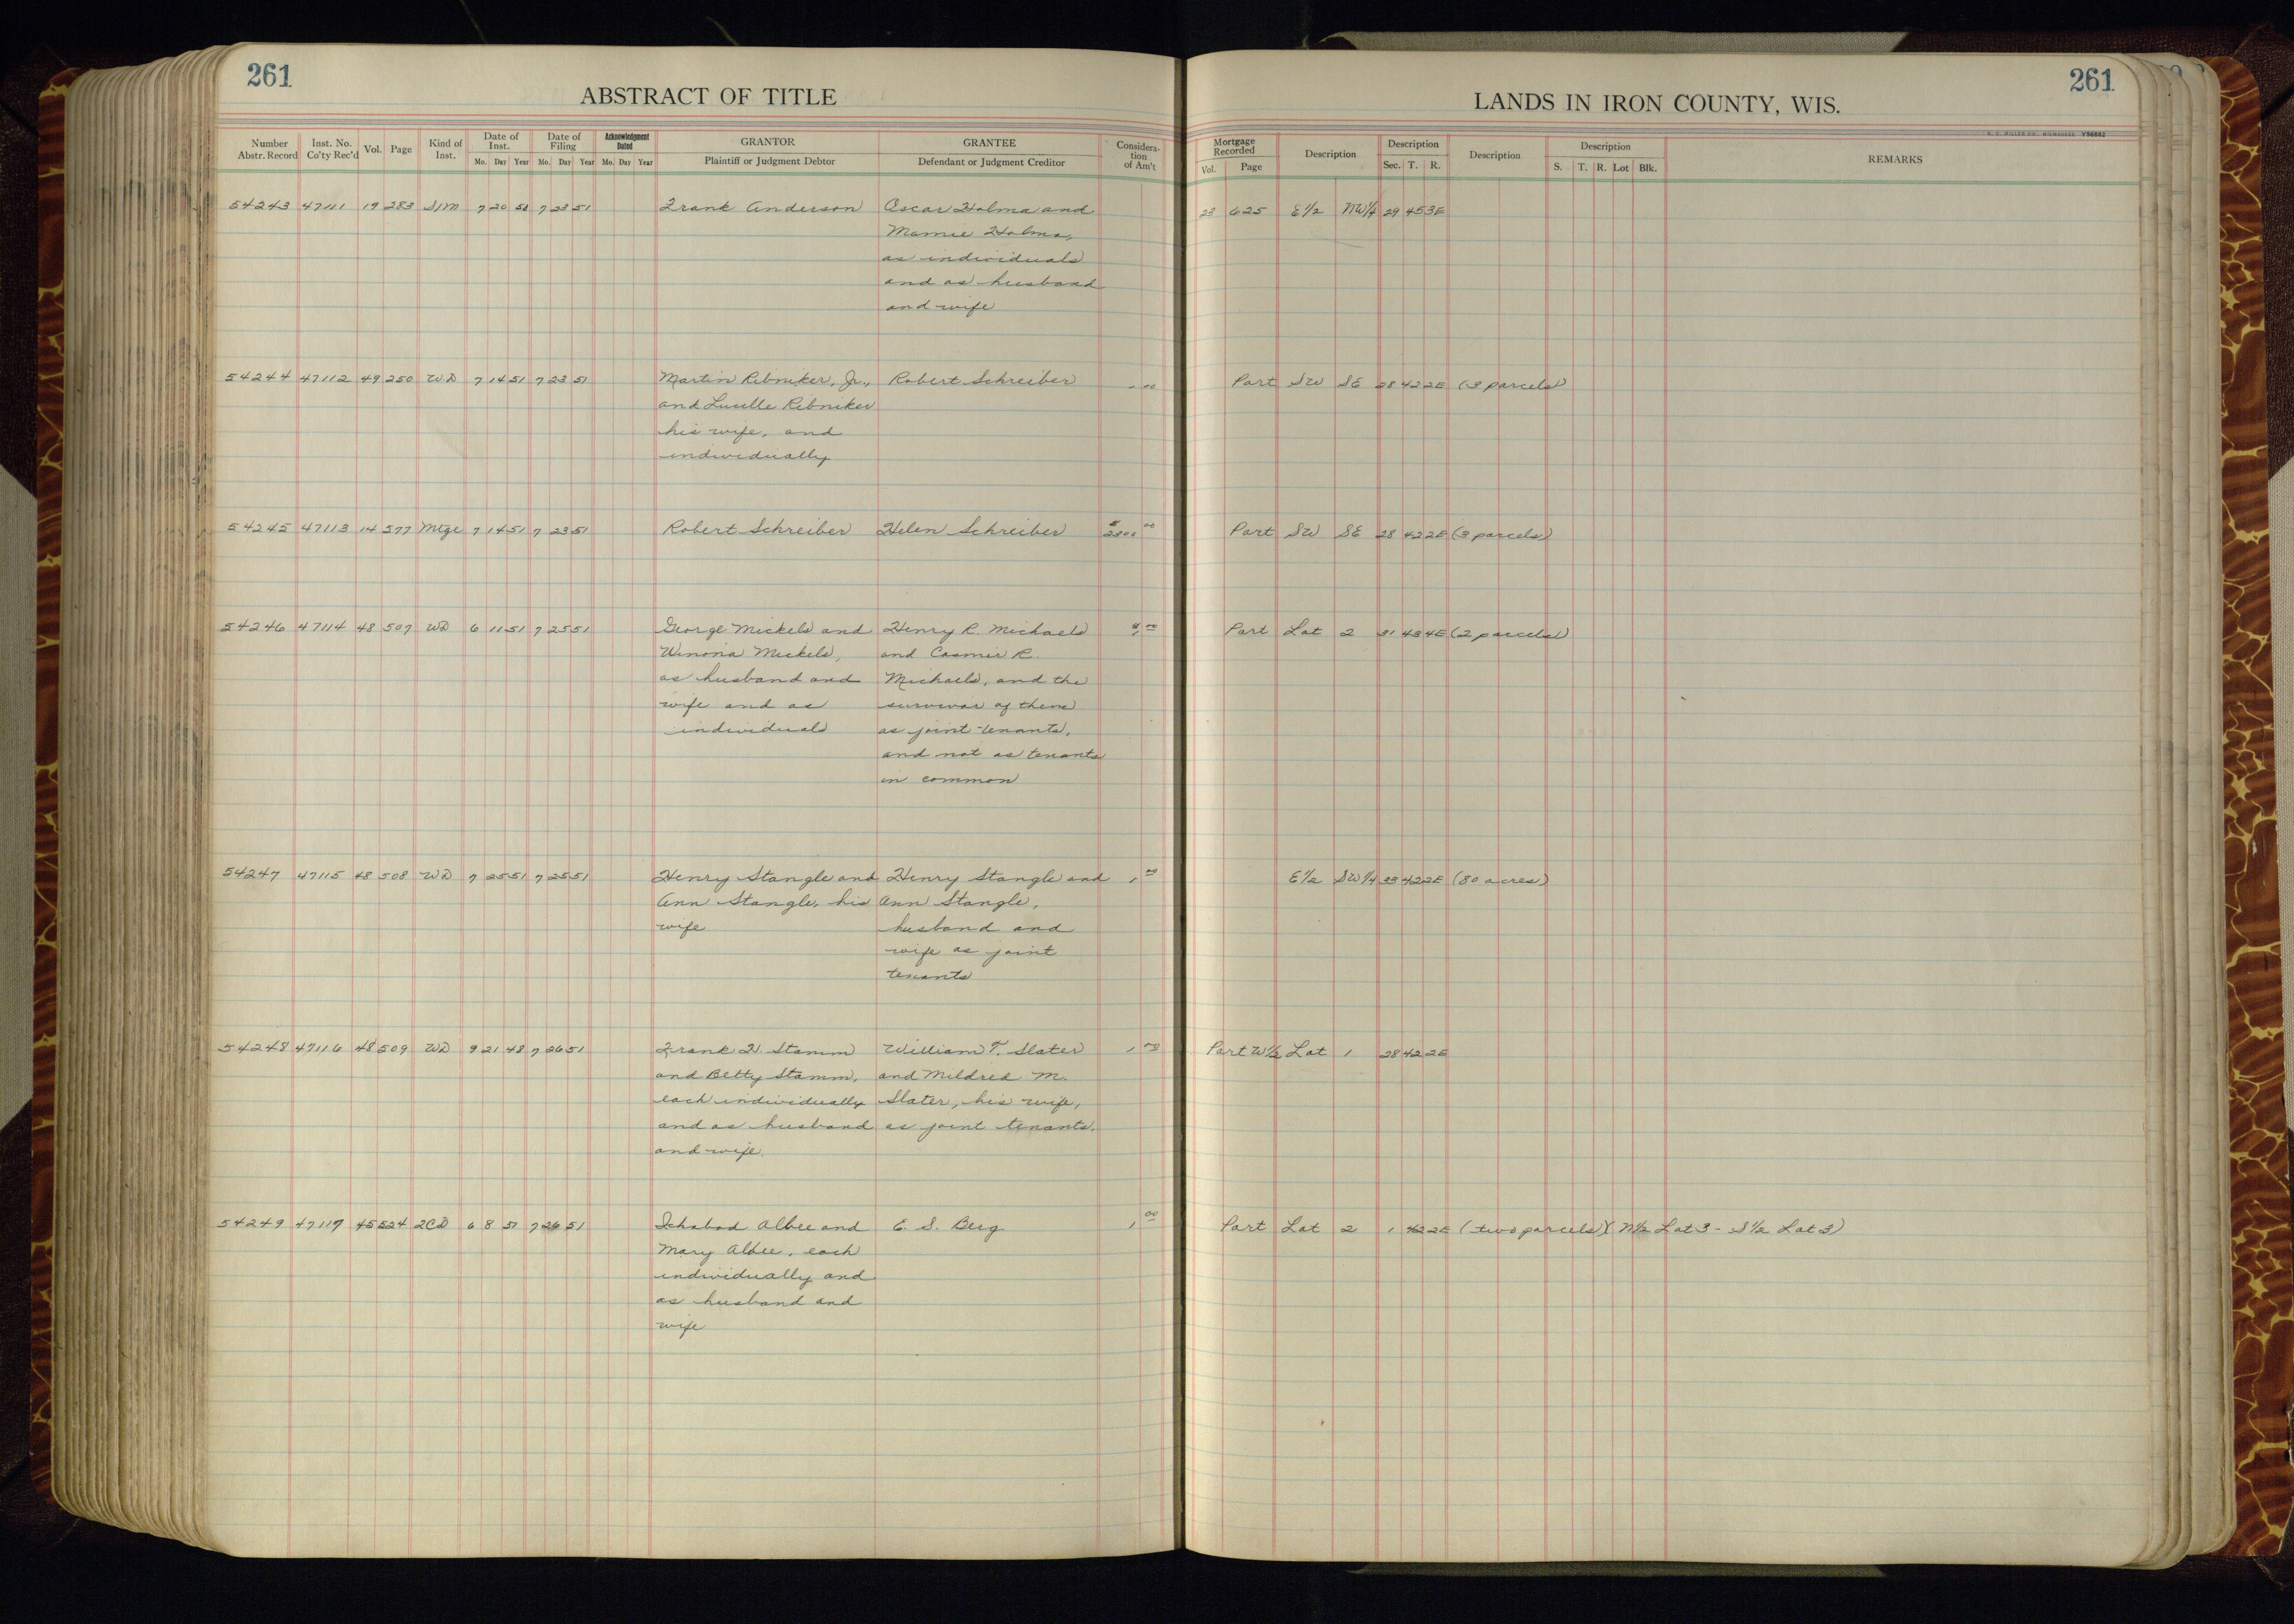 261
ABSTRACT OF TITLE
Number Abstr. Record Inst. No. Co'ty Rec'd Vol. Page Kind of Inst. Date of Inst. Date of Filing Acknowledgment Dated GRANTOR GRANTEE Considera-tion of Am't
Mo. Day Year Mo. Day Year Mo. Day Year Plaintiff or Judgment Debtor Defendant or Judgment Creditor
54243 47111 19 283 S/M 7 20 51 7 23 51 Frank Anderson Oscar Holma and
Mamie Holma,
as individuals
and as husband
and wife
54244 47112 49 250 WD 7 14 51 7 23 51 Martin Ribniker, Jr., Robert Schreiber 1 00
and Lucille Ribniker
his wife, and
individually
54245 47113 14 577 Mtge 7 14 51 7 23 51 Robert Schreiber Helen Schreiber 2300 00
54246 47114 48 507 WD 6 11 51 7 25 51 George Mickels and Henry R. Michaels 00
Winona Mickels, and Casmir R.
as husband and Michaels, and the
wife and as survivor of them
individuals as joint-tenants,
and not as tenants
in common
54247 47115 48 508 WD 7 25 51 7 25 51 Henry Stangle and Henry Stangle and 1 00
Ann Stangle, his Ann Stangle,
wife husband and
wife as joint
tenants
54248 47116 48 509 WD 9 21 48 7 26 51 Frank H. Stamm William T. Slater 1 00
and Betty Stamm, and Mildred M.
each individually Slater, his wife,
and as husband as joint tenants.
and wife.
54249 47117 45 524 2CD 6 8 51 7 26 51 Ichabod Albee and E. S. Berg 1 00
Mary Albee, each
individually and
as husband and
wife
261
LANDS IN IRON COUNTY, WIS.
Mortgage Recorded Description Description Description Description REMARKS
Vol. Page Sec. T. R. S. T. R. Lot Blk.
23 625 E 1/2 NW 1/4 29 45 3E
Part SW SE 28 42 2E (3 parcels)
Part SW SE 28 42 2E (3 parcels)
Part Lot 2 31 43 4E (2 parcels)
E 1/2 SW 1/4 33 42 2E (80 acres)
Part W 1/2 Lot 1 28 42 2E
Part Lot 2 1 42 2E (two parcels) (N 1/2 Lot 3 - S 1/2 Lot 3)